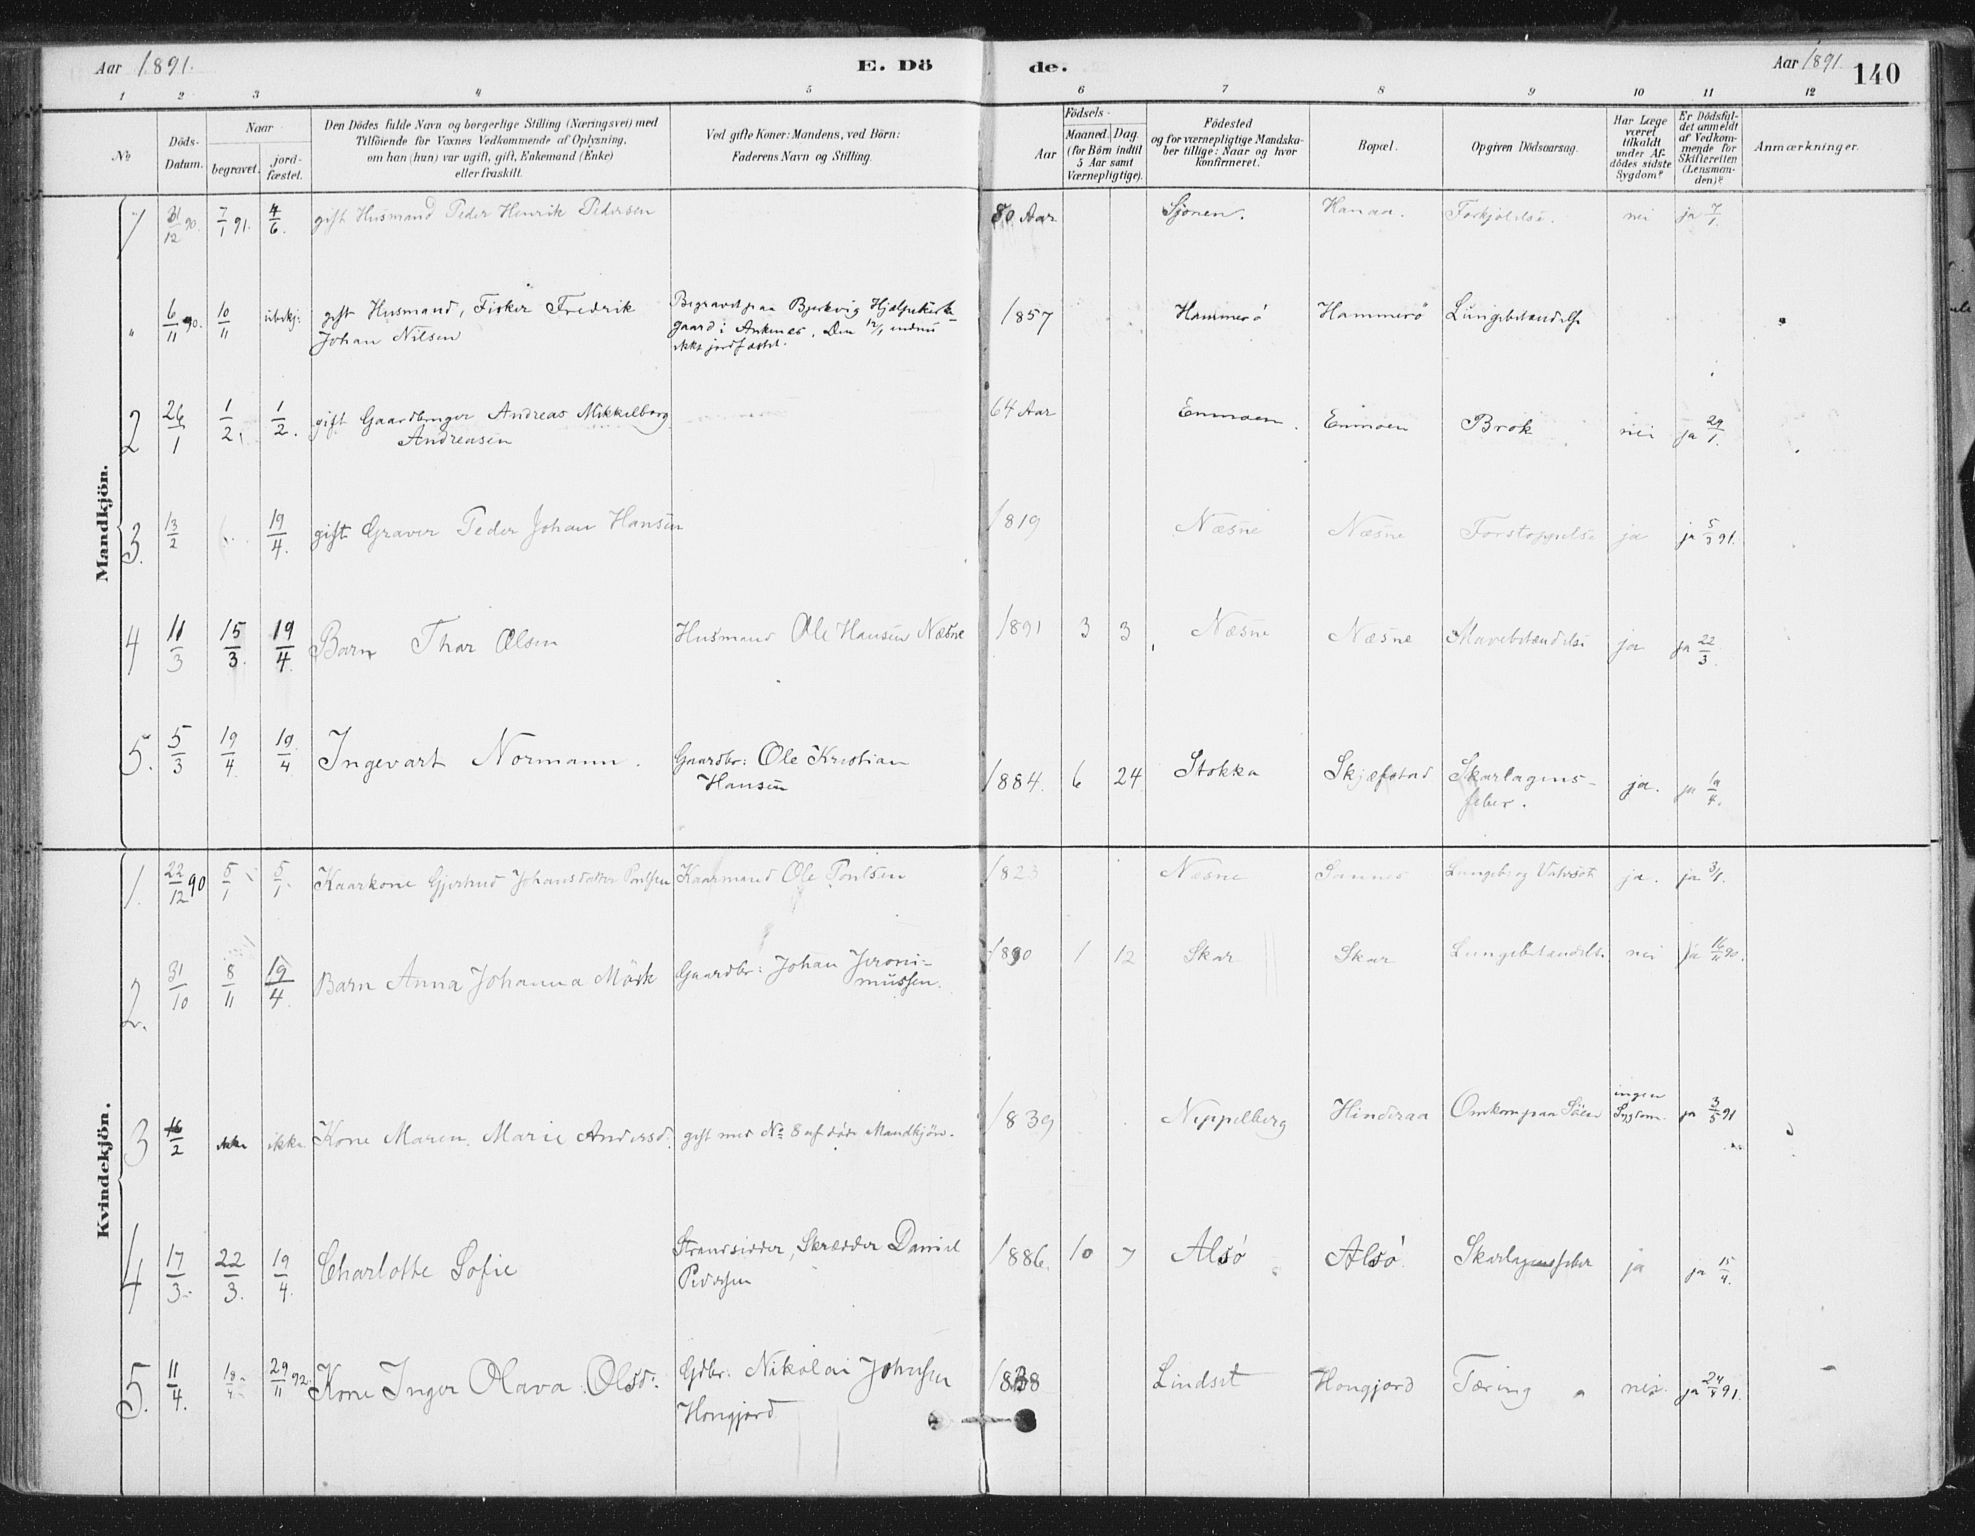 Aar 1891. E. Dö de. Aar 1891. 140
1 2 3 4 5 6 7 8 9 10 11 12
No
Döds-Datum.
Naar
begravet.
jord-fæstet.
Den Dödes fulde Navn og borgerlige Stilling (Næringsvei) med
Tilföiende for Voxnes Vedkommende af Oplysning,
om han (hun) var ugift, gift, Enkemand (Enke)
eller fraskilt.
Ved gifte Koner: Mandens, ved Börn:
Faderens Navn og Stilling.
Födsels-
Aar
Maaned. Dag.
(for Börn indtil
5 Aar samt
Værnepligtige).
Födested
og for værnepligtige Mandska-
ber tillige: Naar og hvor
konfirmeret.
Bopæl.
Opgiven Dödsaarsag.
Har Læge
været
tilkaldt
under Af-
dödes sidste
Sygdom?
Er Dödsfal-
det anmeldt
af Vedkom-
mende for
Skifteretten
(Lensman-
den)?
Anmærkninger.
Mandkjön.
1 31/12 90. 7/1 91. 4/6. gift Husmand Peder Henrik Pedersen 80 Aar Sjonen. Hanaa. Forkjölelse. nei ja 7/1.
" 6/11 90. 10/11 gift Husmand, Fisker Fredrik Begravet paa Bjerkvig Hjælpekirke- 1857 Hammerö Hammerö Lungebetændelse
Johan Nilsen gaard i Ankenes. Den 12/1 endnu
ikke jordfæstet.
2 26/1 1/2. 1/2. gift Gaardbruger Andreas Mikkelborg 64 Aar Enmoen. Enmoen Brok nei ja 29/1.
Andreasen
3. 13/2 19/4. gift Graver Peder Johan Hansen 1819 Næsne Næsne Forstoppelse ja ja 5/3 91.
4 11/3 15/3. 19/4. Barn Thor Olsen Husmand Ole Hansen Næsne 1891 3 3 Næsne Næsne Mavebetændelse ja ja 22/3.
5. 5/3 19/4. 19/4 Ingevart Normann. Gaardbr: Ole Kristian 1884. 6 24 Stokka Skjæfstad Skarlagens-
Hansen feber. ja. ja 19/4.
Kvindekjön.
1. 22/12 90 5/1 5/1. Kaarkone Gjertrud Johansdatter Poulsen Kaarmand Ole Poulsen 1823 Næsne Sannes ja. ja 3/1.
2. 31/10 8/11 19/4. Barn Anna Johanna Mörk Gaardbr: Johan Jeroni- 1890 1 12 Skar Skar Lungebetændelse nei ja 16/11 90.
mussen.
3 16/2 ikke ikke Kone Maren Marie Andersd. gift med No 8 af döde Mandkjön. 1839 Nippelberg Hinderaa Omkom paa Söen ingen
Sygdom ja 3/5 91
4 17/3. 22/3. 19/4. Charlotte Sofie Strandsidder, Skrædder Daniel 1886. 10 7 Alsö Alsö Skarlagensfeber ja ja 15/4.
Pedersen
5. 11/4. 18/4 29/11 92. Kone Inger Olava Olsd. Gdbr. Nikolai Johnsen 1838 Lindset Hongjord Tæring nei. ja 24/4 91.
Hongjord